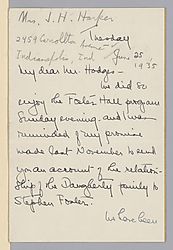 Mrs. J. H. Harker
2459 Carrollton Tuesday
Avenue
Indianapolis, Ind June 25,
1935
My dear Mr. Hodges -
We did so
enjoy the Foster Hall program
Sunday evening - and I was
reminded of my promise
made last November to send
you an account of the relation-
ship of the Daugherty family to
Stephen Foster.
We have been